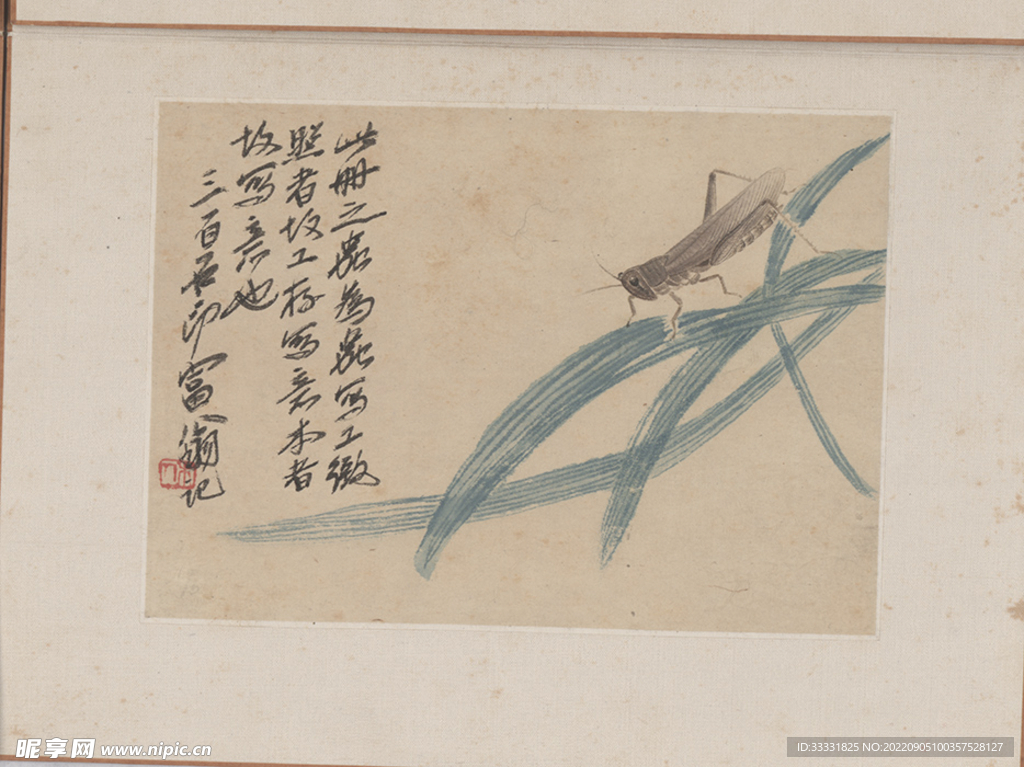 此册之虫為虫写工緻
照者故工存写意本者
故写意也
三百石印富翁記
昵享网 www.nipic.cn
ID:33331825 NO:20220905100357528127